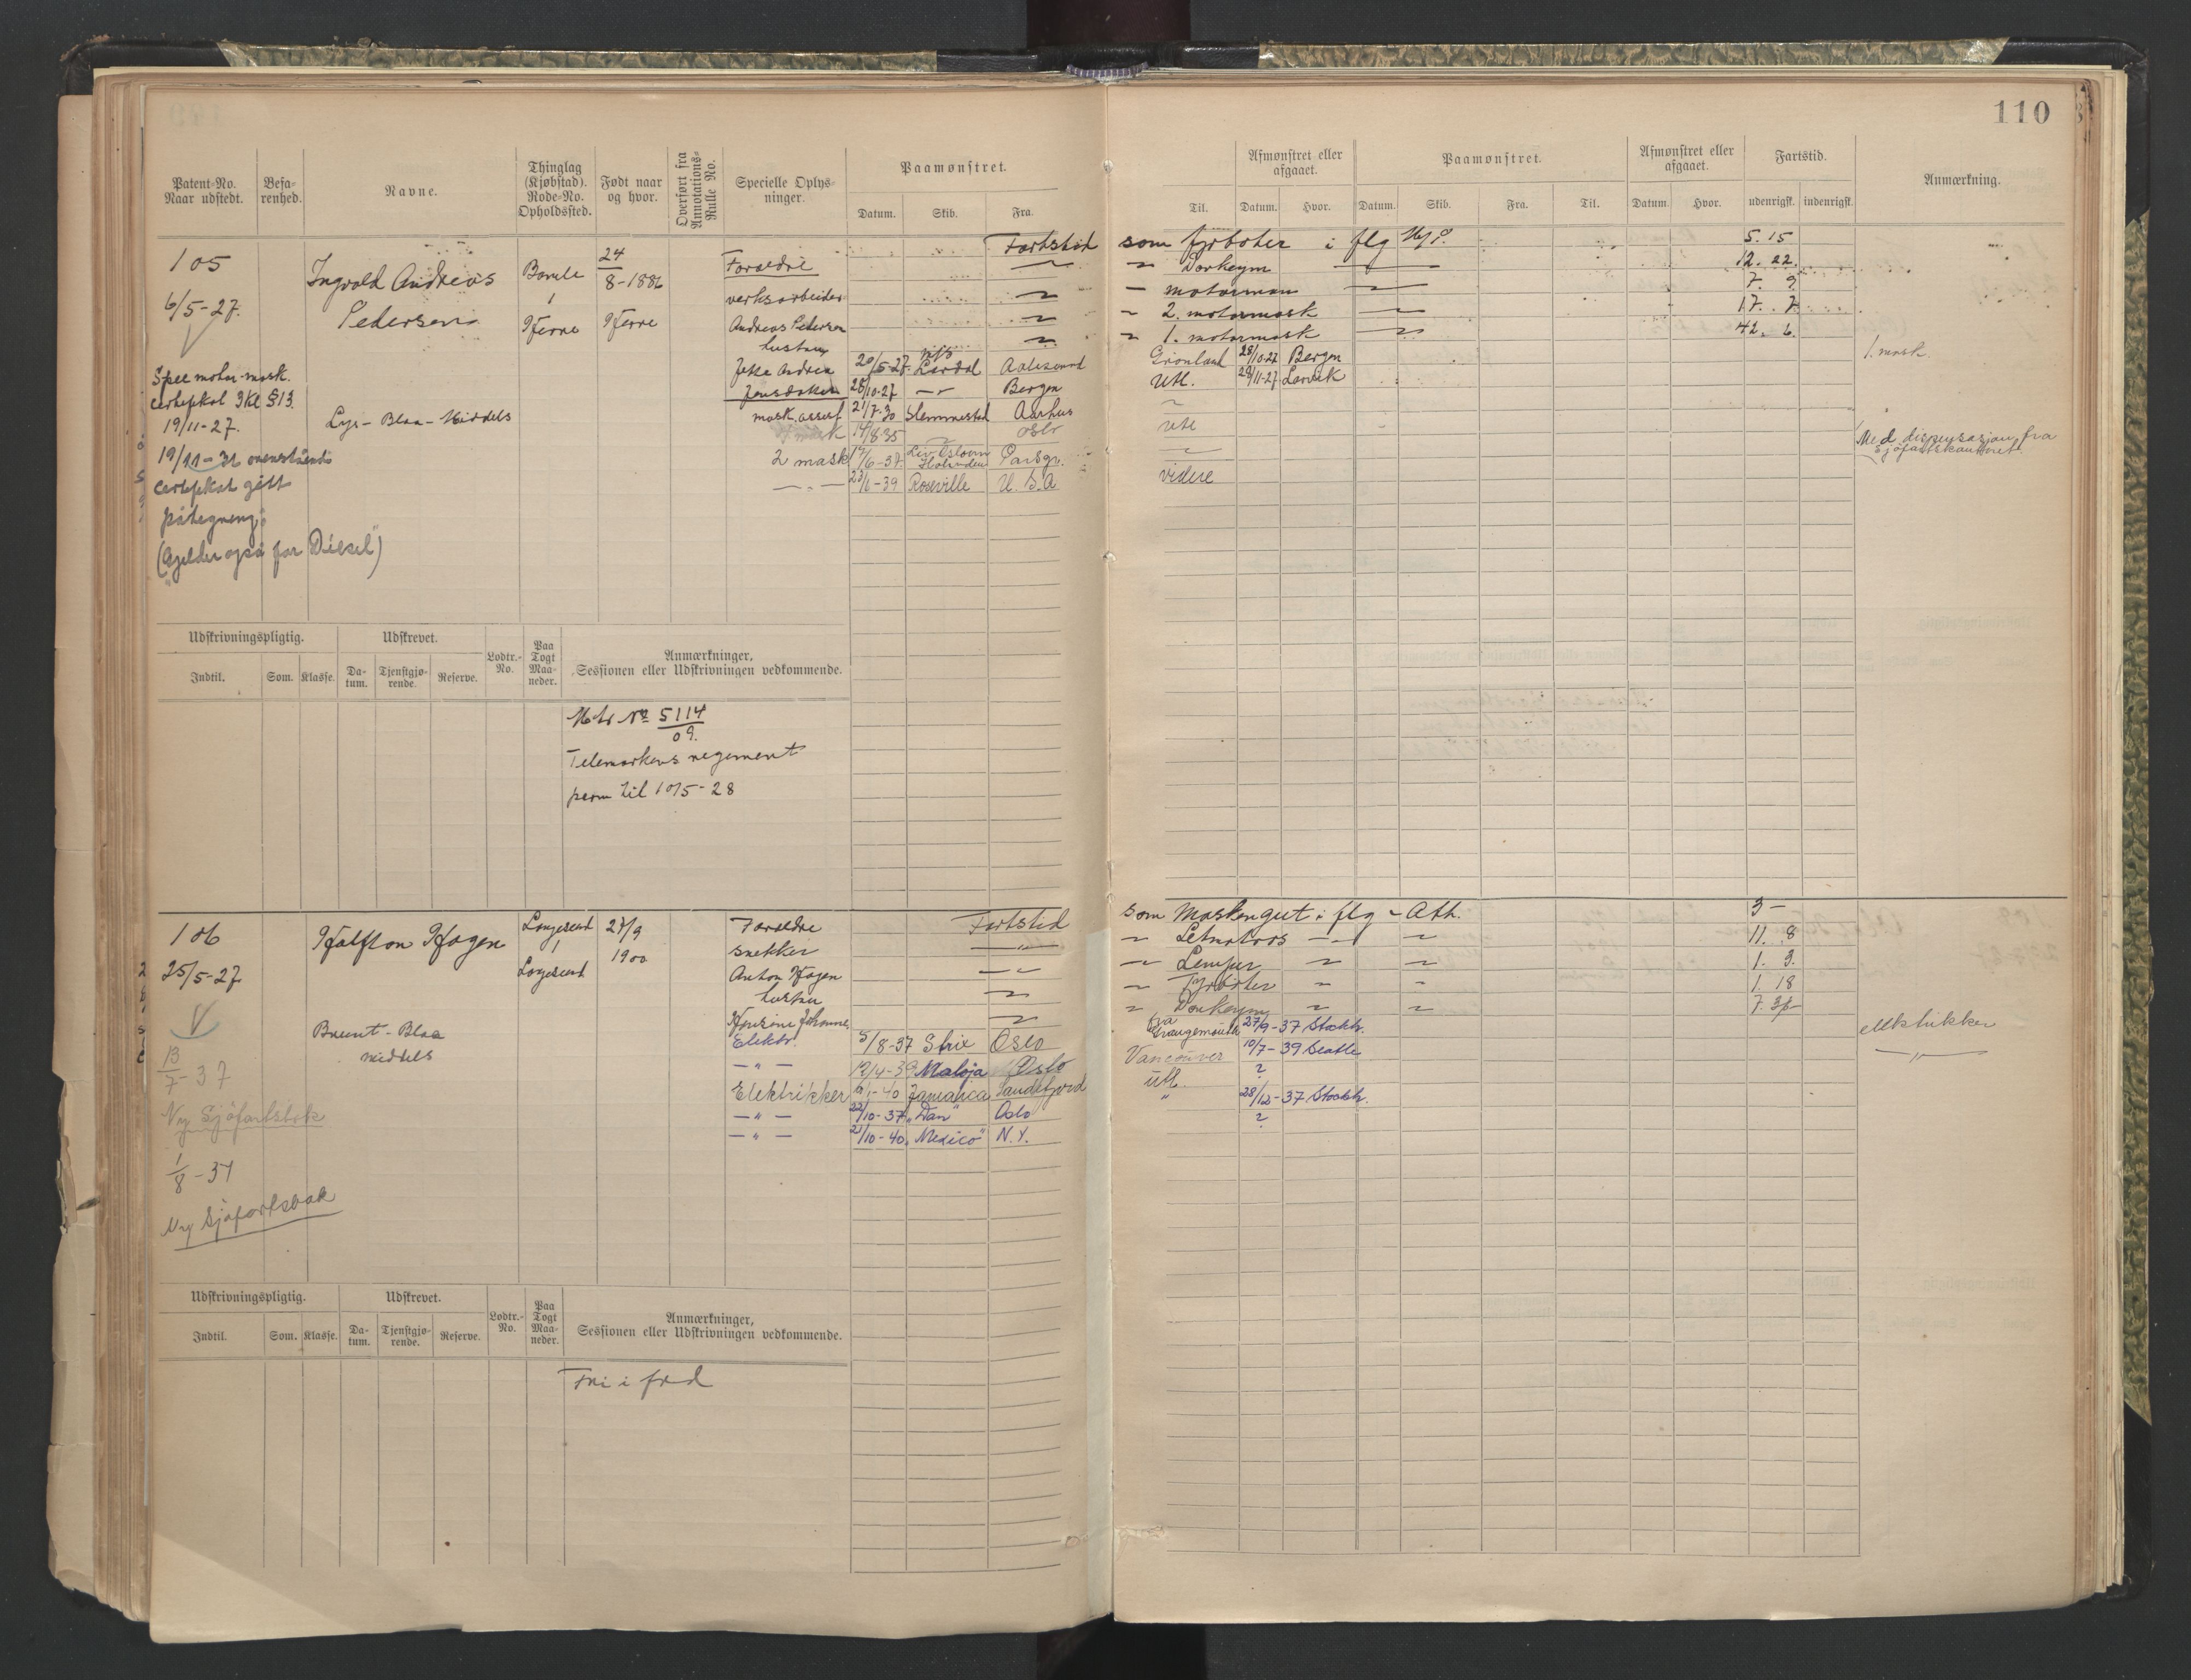 110
Patent-No. Naar udstedt.
Befarenhed.
Navne.
Thinglag (Kjøbstad). Rode-No. Opholdssted.
Født naar og hvor.
Overført fra Annotations-Rulle No.
Specielle Oplysninger.
Paamønstret.
Datum. Skib. Fra.
Til.
Afmønstret eller afgaaet.
Datum. Hvor.
Paamønstret.
Datum. Skib. Fra. Til.
Afmønstret eller afgaaet.
Datum. Hvor.
Fartstid.
udenrigsk. indenrigsk.
Anmærkning.
105
6/5-27.
Ingvald Andreas
Pedersen
Bamle
1
Herre
24
8-1886
Herre
Foreldre
verksarbeider
Andreas Pedersen
hustru
Andrea
Fartstid som fyrbøter i flg 5. 15
" Donkeym 12. 22.
" motorman 7. 9
" 2. motormask 17. 7
" 1. motormask 42. 6.
20/5-27 Lardal Aalesund Grönland 28/10-27 Bergen 1. mask.
28/10-27 —"— Bergen Utl. 29/11-27 Larvik
mask. assist 21/7-30 Slemmestad Aarhus "
mask 14/8-35 Oslo Utl
2 mask 17/6-37 Porsgr. " Med dispensasjon fra
Sjøfartskontoret.
—"— 23/1-39 Roseville U.S.A videre
Spec motor-mask.
certifikat 3 Kl §13.
19/11-27.
Lys - Blaa - Middels
19/11-31 ovenstående
certifikat gitt
påtegning:
(Gjelder også for Diesel")
Udskrivningspligtig.
Indtil. Som. Klasse.
Udskrevet.
Datum. Tjenstgjørende. Reserve.
Lodtr.-No.
Paa Togt Maaneder.
Anmærkninger, Sessionen eller Udskrivningen vedkommende.
No 5114
09.
Telemarkens regement
perm til 10/5-28
106
25/5-27
Halfton Hagen
Langesund
1
Langesund
27/9
1900
Foreldre
snekker
Anton Hagen
hustru
Johanne
Fartstid som Maskingut i flg - Ath. 3 -
" Letmatros " 11. 8
" Lemper " 1. 9.
" Fyrbøter " 1. 18
" Donkeym "
Brunt - Blaa
middels
Elektr. 5/8-37 Strix Oslo fra Grangemouth 27/9-37 Stockh. elektrikker
—"— 12/4-39 Maloja Oslo Vancouver 10/7-39 Seattle —"—
Elektrikker 6/1-40 Jamaica Sandefjord Utl. ?
—"— 22/10-37 "Dan" Oslo " 28/12-37 Stockh.
—"— 21/10-40 "Mexico" N.Y. ?
13
7-37
Ny Sjøfartsbok
1
8-37
Ny Sjøfartsbok
Udskrivningspligtig.
Indtil. Som. Klasse.
Udskrevet.
Datum. Tjenstgjørende. Reserve.
Lodtr.-No.
Paa Togt Maaneder.
Anmærkninger, Sessionen eller Udskrivningen vedkommende.
Fri i fred